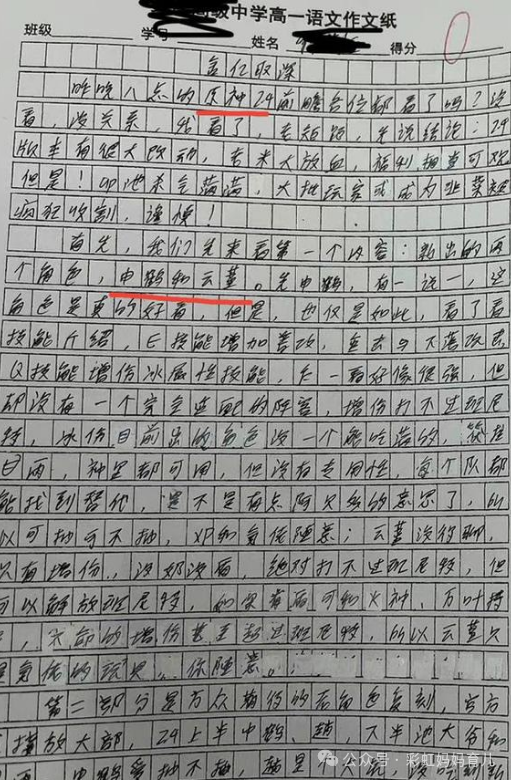 高级中学高一语文作文纸
班级 学号 姓名 得分
0
昨晚八点的原神24前瞻各位都看了吗?没
看,没关系,我看了,老规矩,先说结论:24
版本有很大改动,未来大放血,福利相当可观
但是!卯池杀气满满,大批玩家或成为韭菜被
疯狂收割,谨慎!
首先,我们先来看第一个内容:新出的两
个角色,申鹤和云堇。先申鹤,有一说一,这
角色是真的好看,但是,也仅是如此,看了看
技能介绍,E技能增加善攻,重击与下落攻击,
Q技能增伤冰属性技能,乍一看好像很强,但
却没有一个完全适配的阵容,增伤打不过班尼
特,冰伤目前出的角色没一个能吃满的,
目前,神里都可用,但没有专用性,每个队都
能找到替代,是不是有点阿贝多的意思了,所
以可抽可不抽,XP和氪佬随意;云堇没得聊,
只有增伤,没奶没盾,绝对打不过班尼特,但
可以解放班尼特,如果前面可和火神、万叶特
,六命的增伤甚至超过班尼特,所以云堇只
是氪佬的玩具,你随意。
第二部分是万众期待的老角色复刻,官方
摆放大部,24上半申鹤、魈,下半池大爷和
公众号·彩虹妈妈育儿